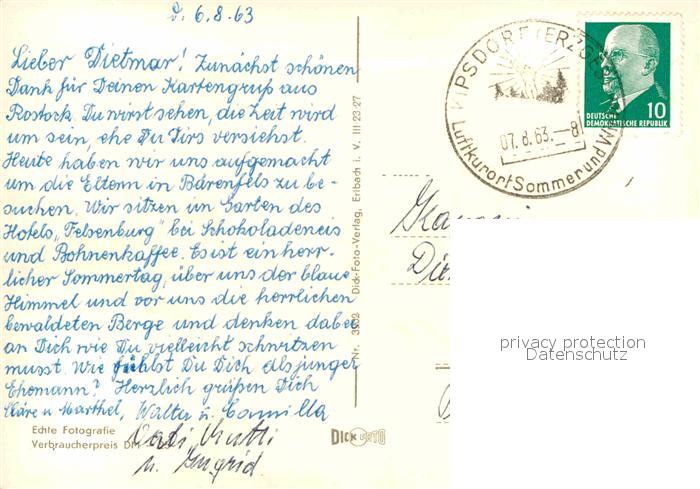 d. 6.8.63
Lieber Dietmar! Zunächst schönen
Dank für Deinen Kartengruß aus
Rostock. Du wirst sehen, die Zeit wird
um sein, ehe Du Dirs versiehst.
Heute haben wir uns aufgemacht
um die Eltern in Bärenfels zu be-
suchen. Wir sitzen im Garten des
Hotels „Felsenburg" bei Schokoladeneis
und Bohnenkaffee. Es ist ein herr-
licher Sommertag, über uns der blaue
Himmel und vor uns die herrlichen
bewaldeten Berge und denken dabei
an Dich wie Du vielleicht schwitzen
musst. Wie fühlst Du Dich als junger
Ehemann? Herzlich grüßen Dich
Kläre u. Marthel, Walter u. Camilla
Vati, Mutti
u. Ingrid.
Echte Fotografie
Verbraucherpreis DM
DICK FOTO
Nr. 3902 Dick-Foto-Verlag, Erlbach i. V. III 23 27
KIPSDORF (ERZGEB.)
07.8.63.-8
Luftkurort Sommer und
10
DEUTSCHE
DEMOKRATISCHE REPUBLIK
privacy protection
Datenschutz